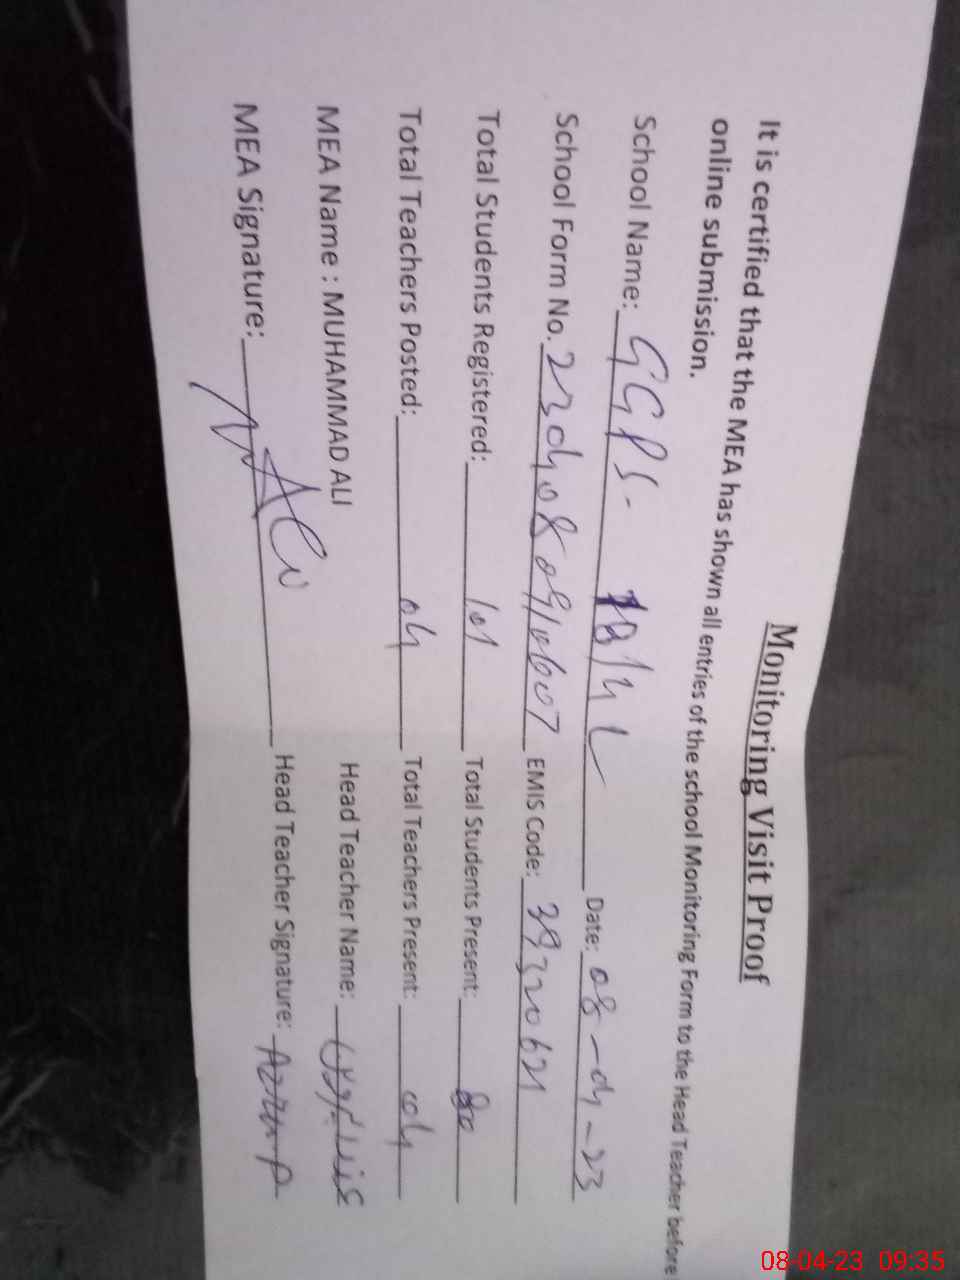 Monitoring Visit Proof
It is certified that the MEA has shown all entries of the school Monitoring Form to the Head Teacher before
online submission.
School Name: GGPS. Date: 08-04-23
School Form No. 2304080910607 EMIS Code: 39320621
Total Students Registered: 101 Total Students Present: 80
Total Teachers Posted: 04 Total Teachers Present: 04
MEA Name : MUHAMMAD ALI Head Teacher Name:
MEA Signature: Head Teacher Signature:
08-04-23 09:35